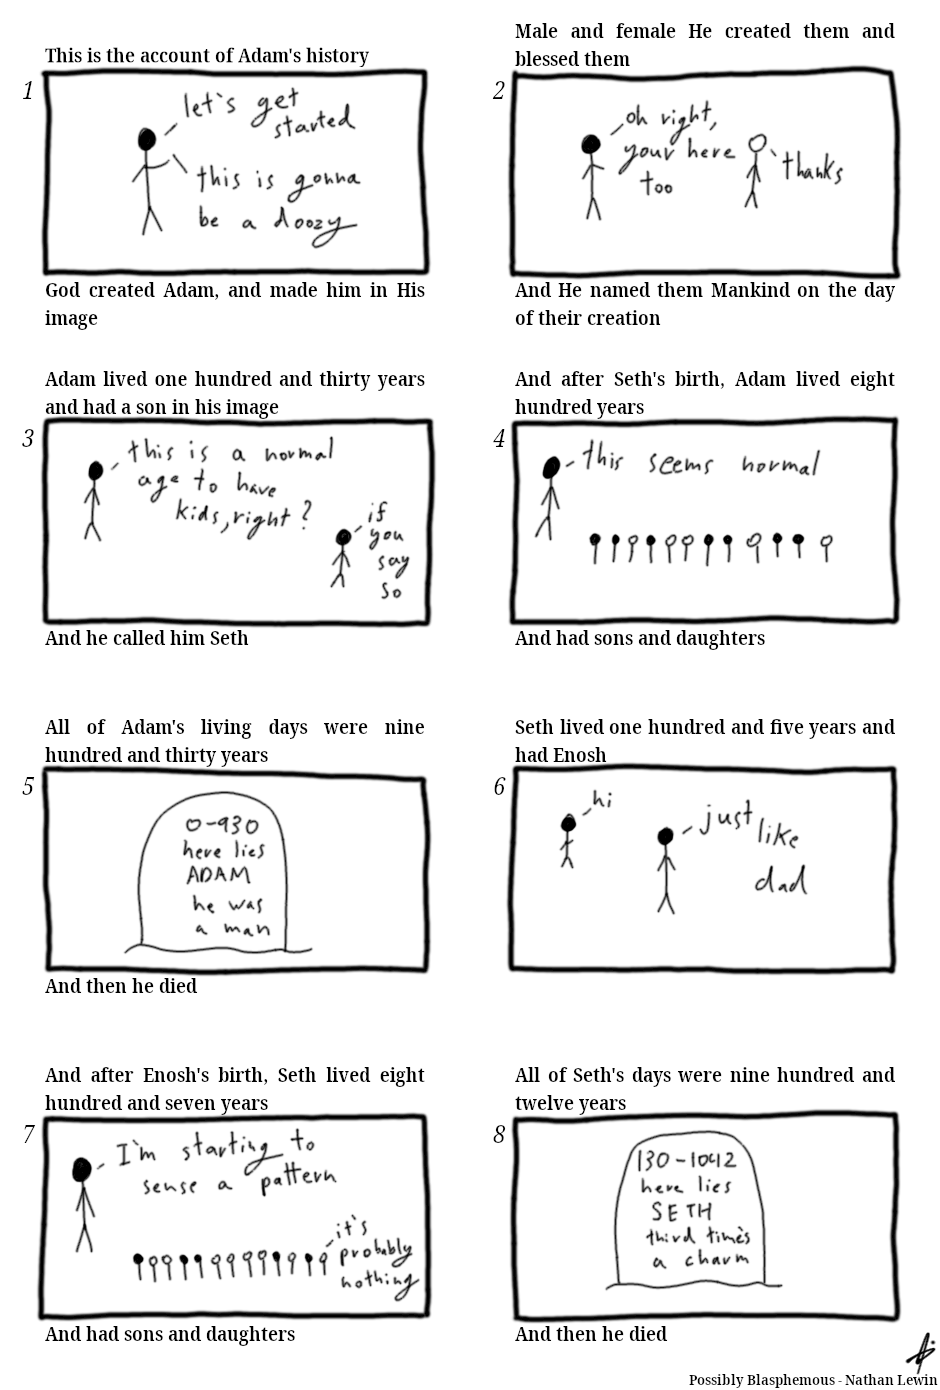 This is the account of Adam's history
1
let's get
started
this is gonna
be a doozy
God created Adam, and made him in His
image
Male and female He created them and
blessed them
2
oh right,
your here
too
thanks
And He named them Mankind on the day
of their creation
Adam lived one hundred and thirty years
and had a son in his image
3
this is a normal
age to have
kids, right?
if
you
say
so
And he called him Seth
And after Seth's birth, Adam lived eight
hundred years
4
this seems normal
And had sons and daughters
All of Adam's living days were nine
hundred and thirty years
5
0-930
here lies
ADAM
he was
a man
And then he died
Seth lived one hundred and five years and
had Enosh
6
hi
just
like
dad
And after Enosh's birth, Seth lived eight
hundred and seven years
7
I'm starting to
sense a pattern
it's
probably
nothing
And had sons and daughters
All of Seth's days were nine hundred and
twelve years
8
130-1042
here lies
SETH
third time's
a charm
And then he died
Possibly Blasphemous - Nathan Lewin